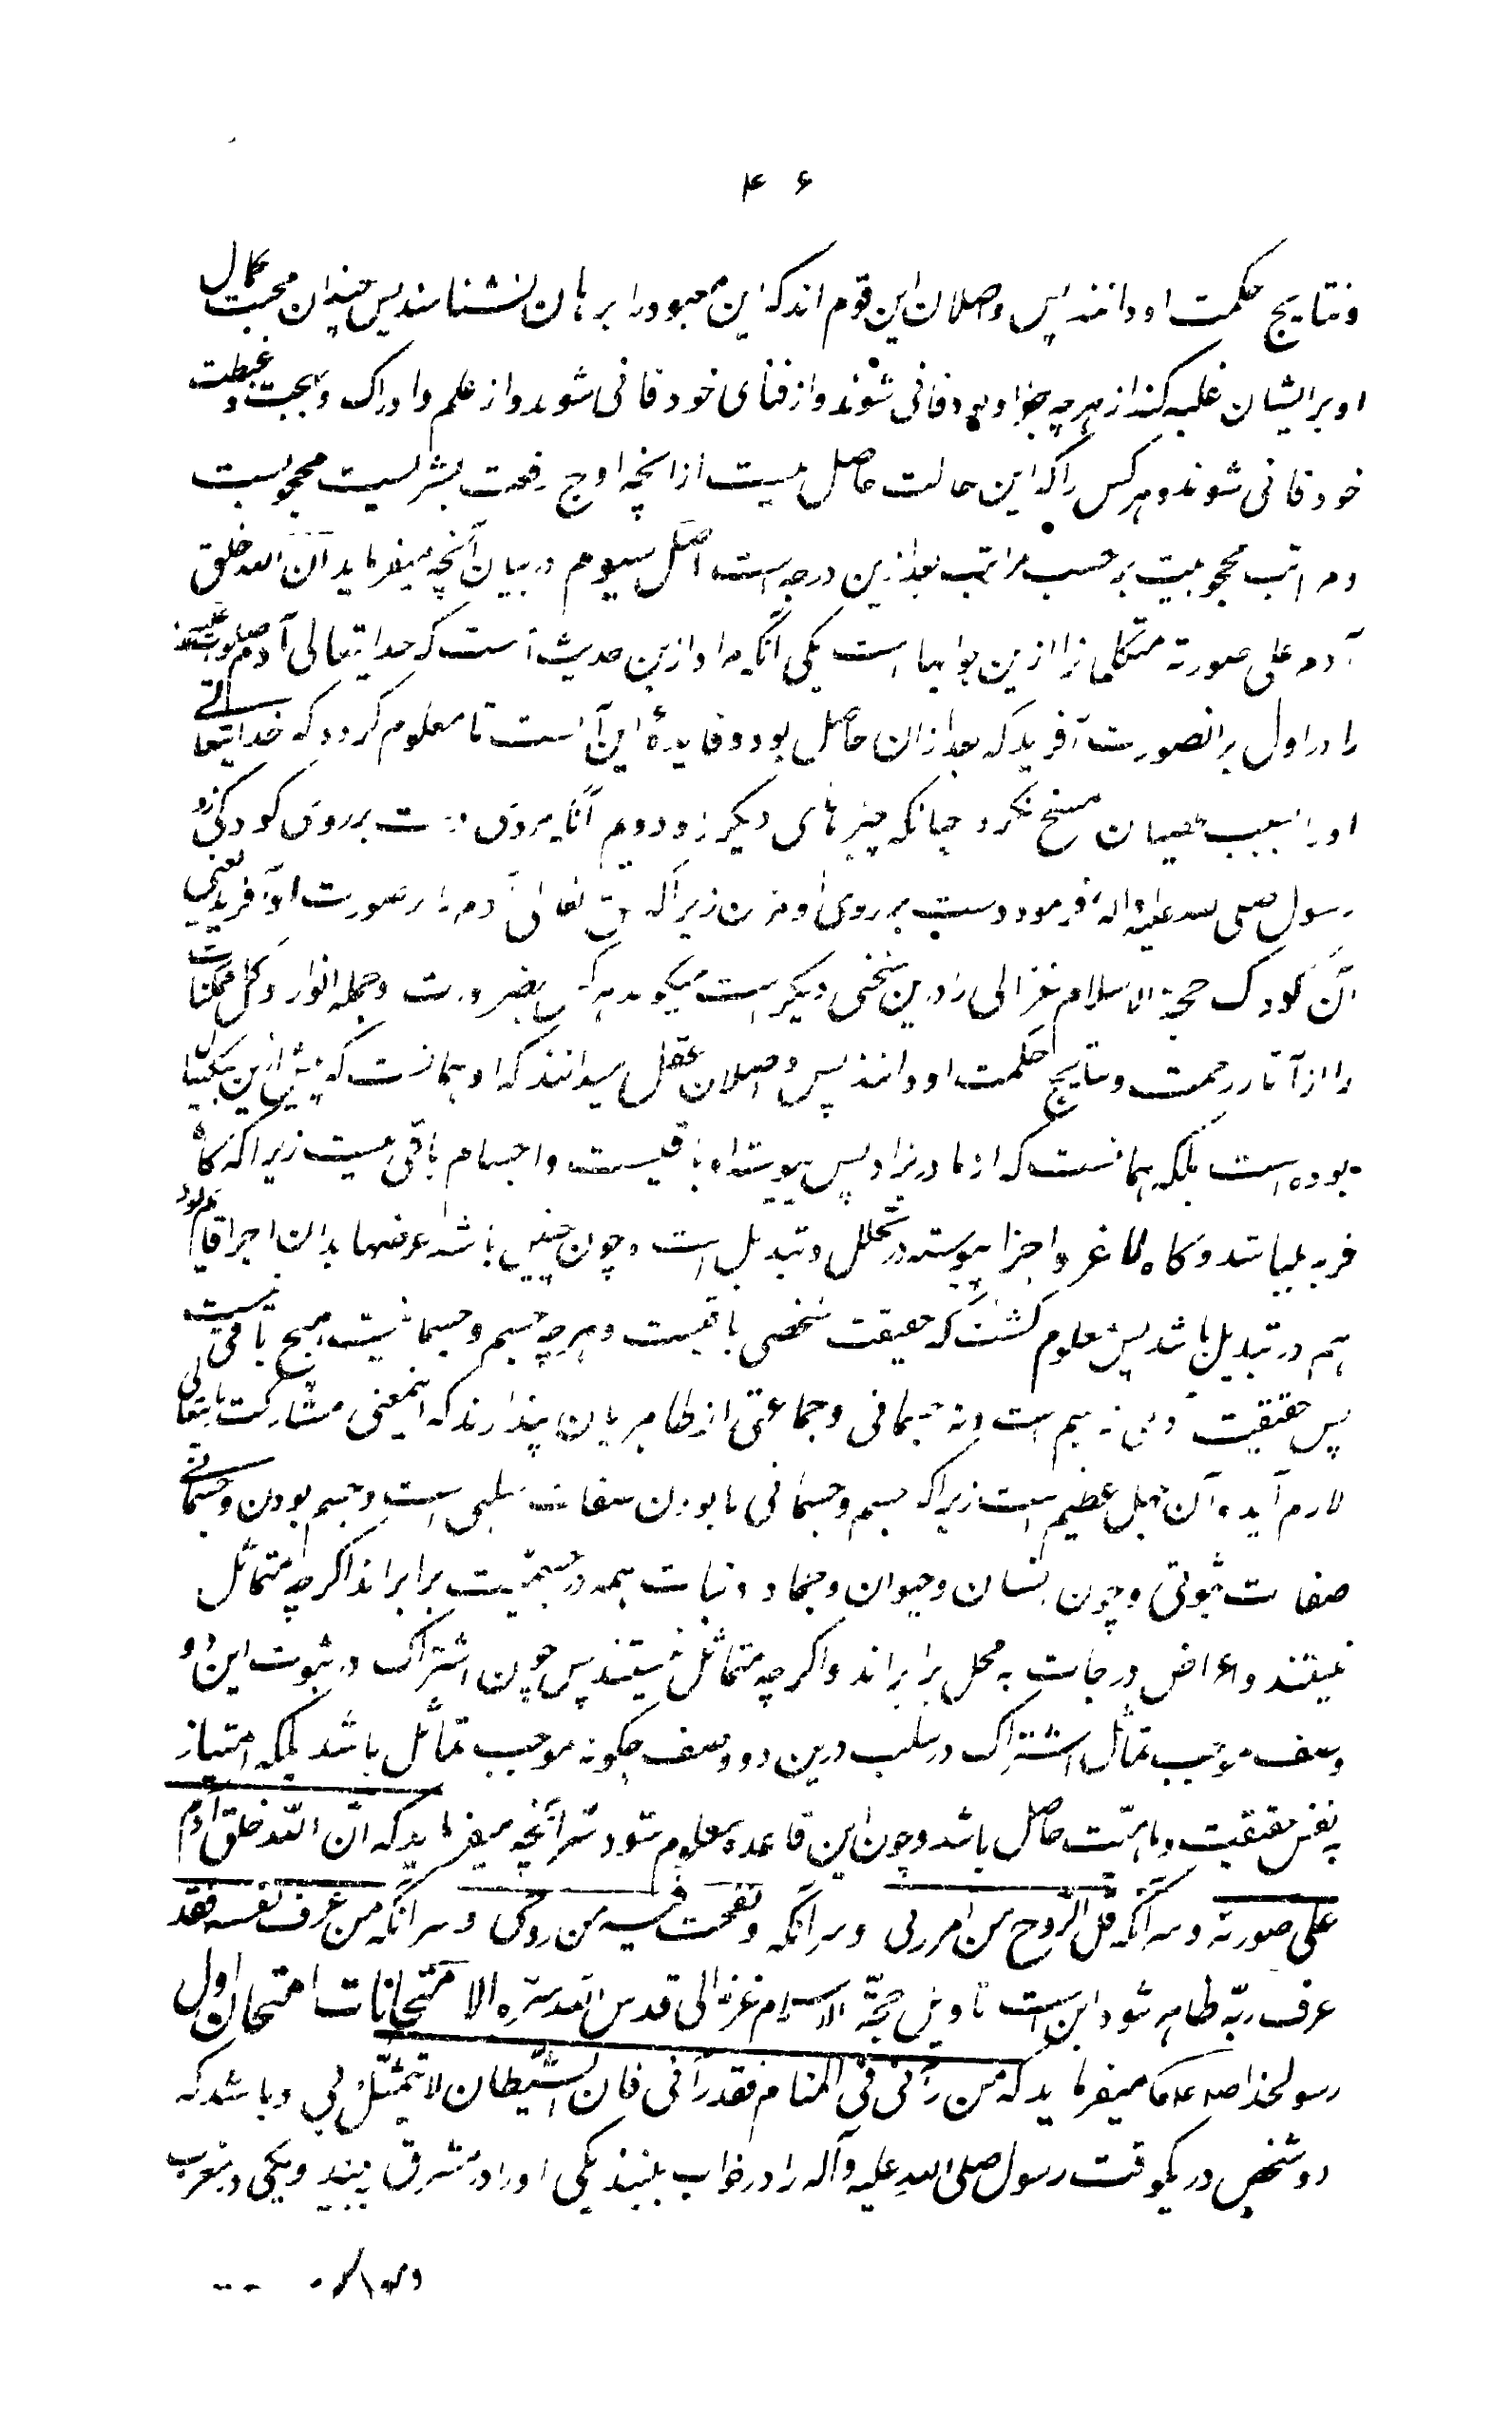 ۴۶
و نتایج حکمت او دانند پس واصلان این قوم اند که این معبود را برهان نشناسند پس چندان محبت کمال
او بر ایشان غلبه کند از هر چه جز او بود فانی شوند و از فنای خود فانی شوند و از علم و ادراک و بهجت و غبطت
خود فانی شوند و هر کس را که این حالت حاصل نیست از آنچه اوج رفعت بشریست محجوبست
و مراتب محجوبیت بر حسب مراتب بعد ازین درجه است اصل سیوم در بیان آنچه میفرماید ان الله خلق
آدم علی صورته متکلمانرا ازین جوابها است یکی آنکه مراد ازین حدیث آنست که خدایتعالی آدم صلوات علیه
را در اول بر انصورت آفرید که بعد ازان حاصل بود و فایدهٔ این آنست تا معلوم کردد که خدایتعالی
او را بسبب عصیان مسخ نکرد چنانکه چیزهای دیکر را و دوم آنکه مردی دست بر روی کودکی زد
رسول صلی الله علیه و اله فرمود دست بر روی او مزن زیرا که حق تعالی آدم را بر صورت او آفرید یعنی
آن کودک حجة الاسلام غزالی را درین سخنی دیکر است میکوید هر که بضرورت و جمله انوار و کل ممکنات
را از آثار رحمت و نتایج حکمت او دانند پس واصلان عقل میدانند که او همانست که پیش ازین بیکسال
بوده است بلکه همانست که از مادر زاد پس پیوسته او باقیست و اجسام باقی نیست زیرا که کاه
فربه میباشد و کاه لاغر و اجزا پیوسته در تحلل و تبدیل است و چون چنین باشد عرضها بدان اجزا قایم بود
هم در تبدیل باشد پس معلوم کشت که حقیقت شخصی باقیست و هرچه جسم و جسمانیست هیچ باقی نیست
پس حقیقت آدمی نه جسم است و نه جسمانی و جماعتی از ظاهریان پندارند که اینمعنی مشارکت باریتعالی
لازم آید و آن جهل عظیم است زیرا که جسم و جسمانی نابودن صفات سلبی است و جسم بودن و جسمانی
صفات ثبوتی و چون انسان و حیوان و جماد و نبات همه در جسمیت برابر اند اکر چه متماثل
نیستند و اعراض در حاجت به محل برابر اند و اکر چه متماثل نیستند پس چون اشتراک در ثبوت این دو
وصف موجب تماثل اشتراک در سلب درین دو وصف چکونه موجب تماثل باشد بلکه امتیاز
بنفس حقیقت و ماهیّت حاصل باشد و چون این قاعده معلوم شود سرّ آنچه میفرماید که انّ اللّه خلق آدم
علی صورته و سرّ آنکه قل الرّوح من امر ربی و سرّ آنکه و نفخت فیه من روحی و سر آنکه من عرف نفسه فقد
عرف ربّه ظاهر شود این است تاویل حجّة الاسلام غزالی قدس اللّه سرّه الامتحانات امتحان اول
رسولخدا میفرماید که من رآنی فی المنام فقد رآنی فان الشیطان لا یتمثّل بی و باشد که
دو شخص در یکوقت رسول صلی الله علیه و آله را در خواب بینند یکی او را در مشرق بیند و یکی در مغرب